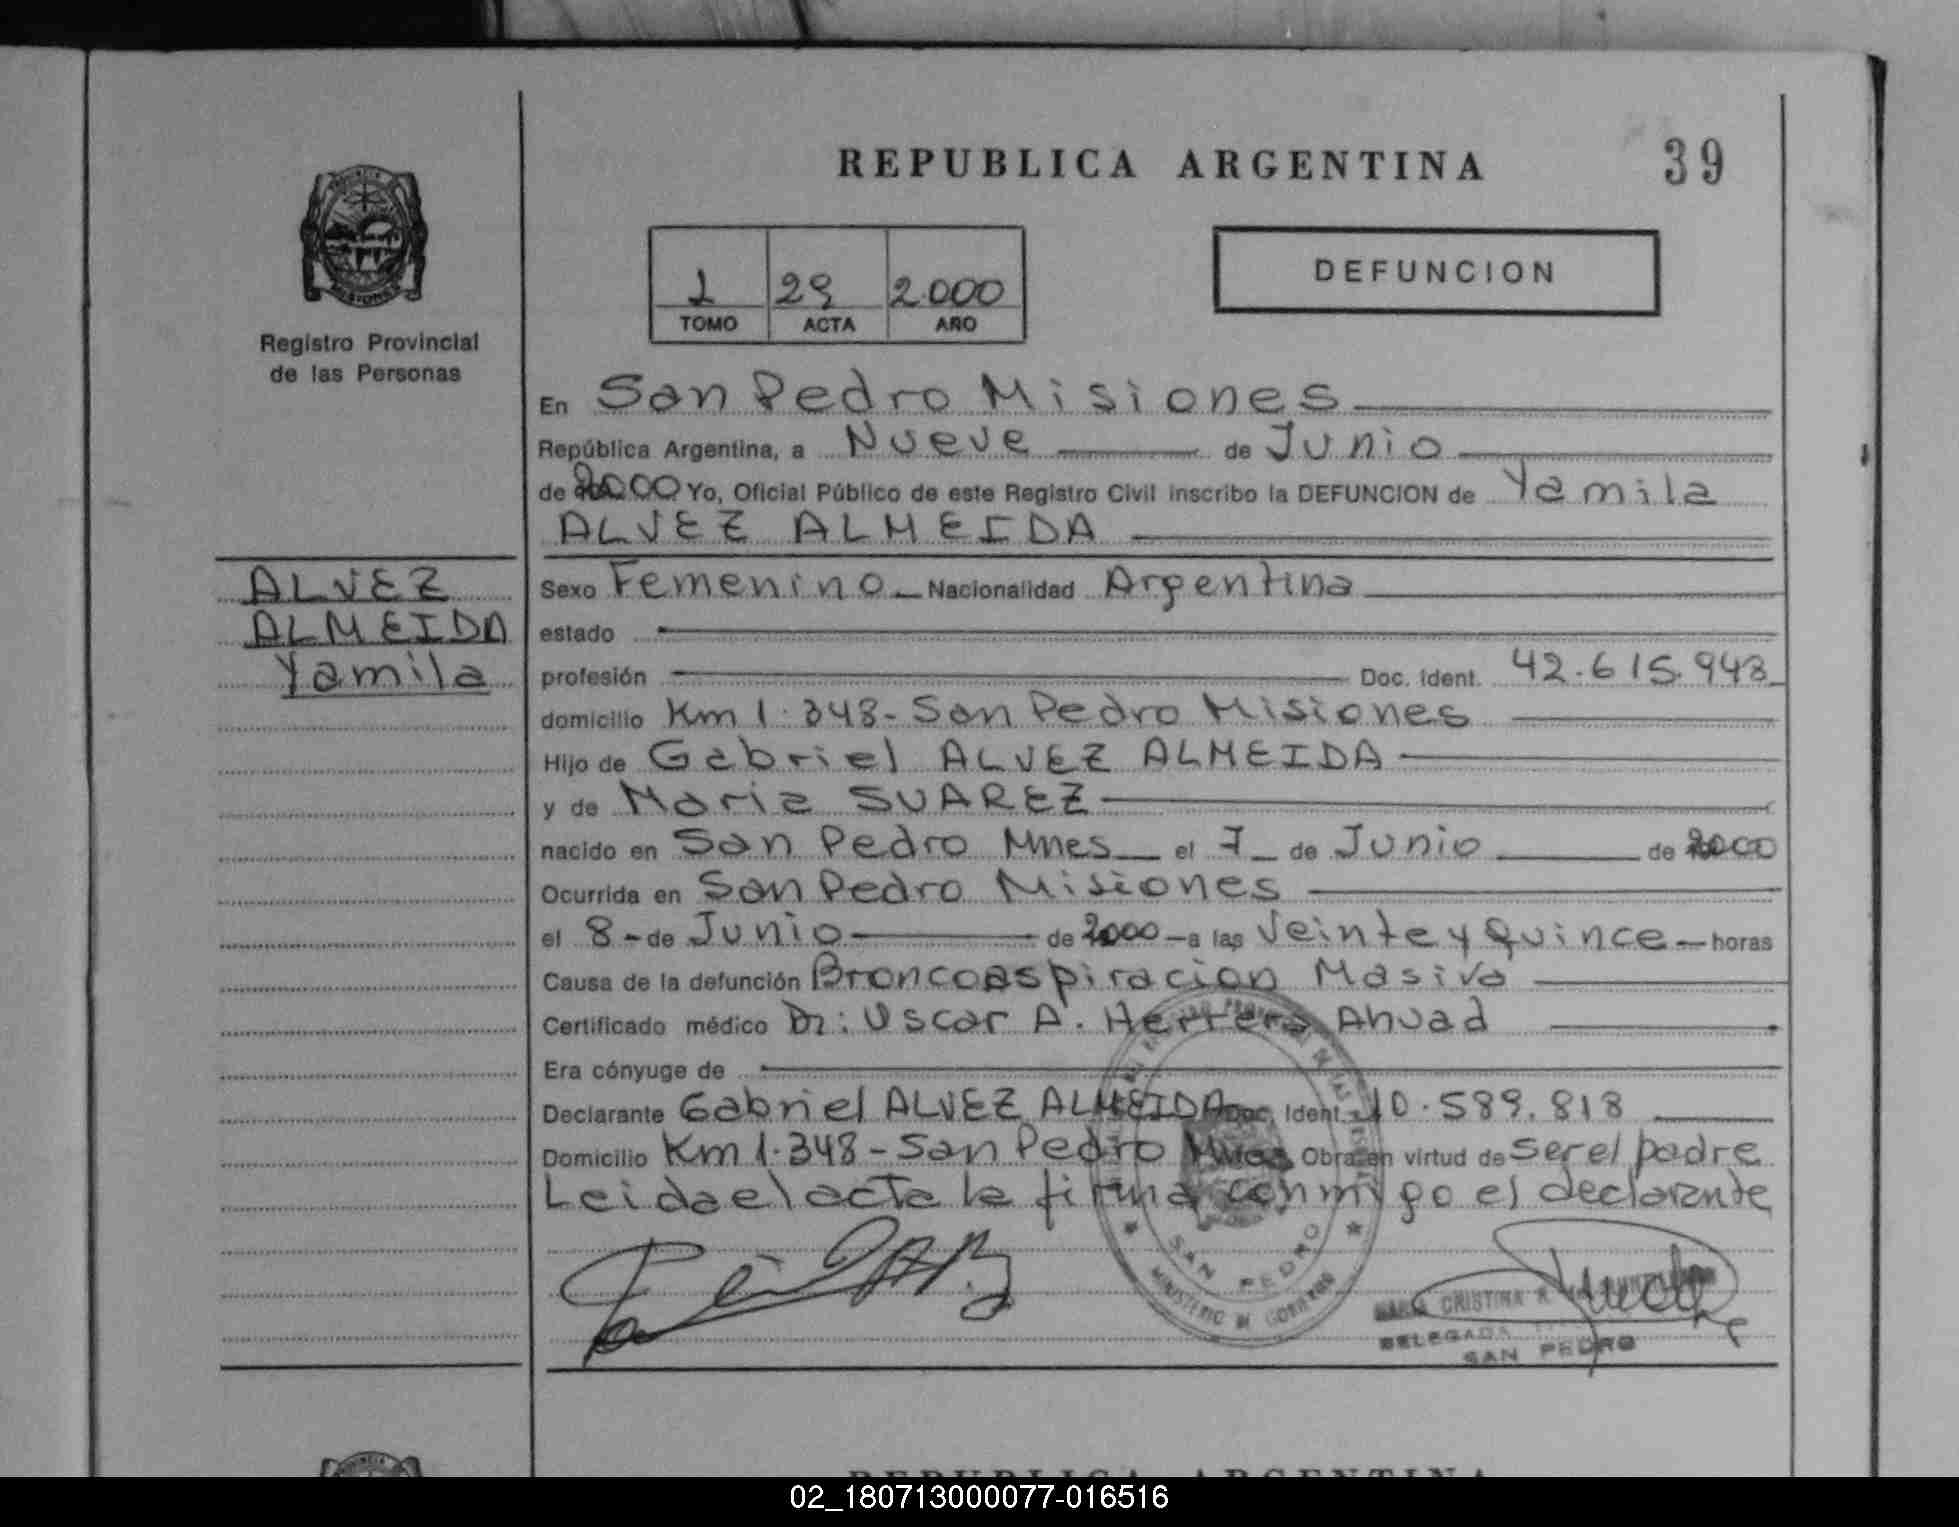 REPUBLICA ARGENTINA
39
Registro Provincial
de las Personas
1 29 2.000
TOMO ACTA AÑO
DEFUNCION
En San Pedro Misiones
República Argentina, a Nueve de Junio
de 2000 Yo, Oficial Público de este Registro Civil inscribo la DEFUNCION de Yamila
ALVEZ ALMEIDA
ALVEZ
ALMEIDA
Yamila
Sexo Femenino Nacionalidad Argentina
estado
profesión Doc. Ident. 42.615.943
domicilio Km 1.348 - San Pedro Misiones
Hijo de Gabriel ALVEZ ALMEIDA
y de Maria SUAREZ
nacido en San Pedro Mnes el 7 de Junio de 2000
Ocurrida en San Pedro Misiones
el 8 - de Junio de 2000 - a las Veinte y Quince horas
Causa de la defunción Broncoaspiracion Masiva
Certificado médico Dr: Oscar A. Herrera Ahuad
Era cónyuge de
Declarante Gabriel ALVEZ ALMEIDA Doc. Ident. 10.589.818
Domicilio Km 1.348 - San Pedro Mnes Obra en virtud de ser el padre
Leida el acta la firma conmigo el declarante
SAN PEDRO
MINISTERIO DE GOBIERNO
MARIA CRISTINA
DELEGADA
SAN PEDRO
REPUBLICA ARGENTINA
02_180713000077-016516